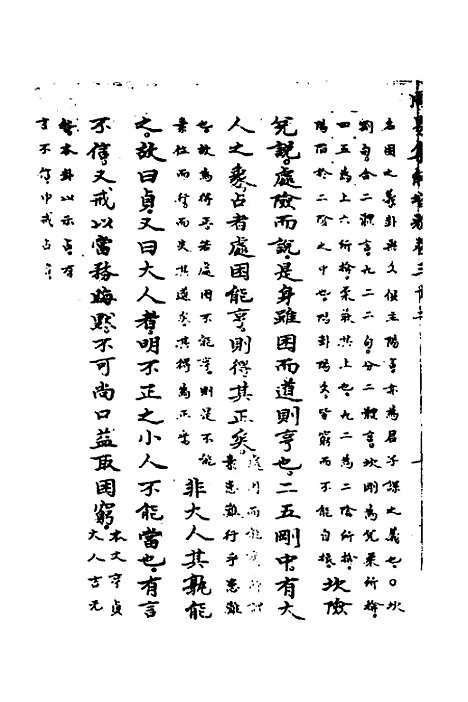 名困之義卦與爻俱主陽言亦為君子謀之義也○坎
剛句合二體言九二二句分二體言坎剛為兌柔所揜
四五為上六所揜柔蔽其上也九二為二陰所揜
陽陷於二陰之中也陽卦陽爻皆窮而不能自振坎險
兌說處險而說是身雖困而道則亨也二五剛中有大
人之象占者處困能亨則得其正矣
素患難行乎患難
也故為得正若處困不能亨則是不能
素位而行而失其道矣其得為正乎非大人其孰能
之故曰貞又曰大人者明不正之小人不能當也有言
不信又戒以當務晦默不可尚口益取困窮
本文亨貞
大人吉无
咎本卦以示占有
言不信中戒占